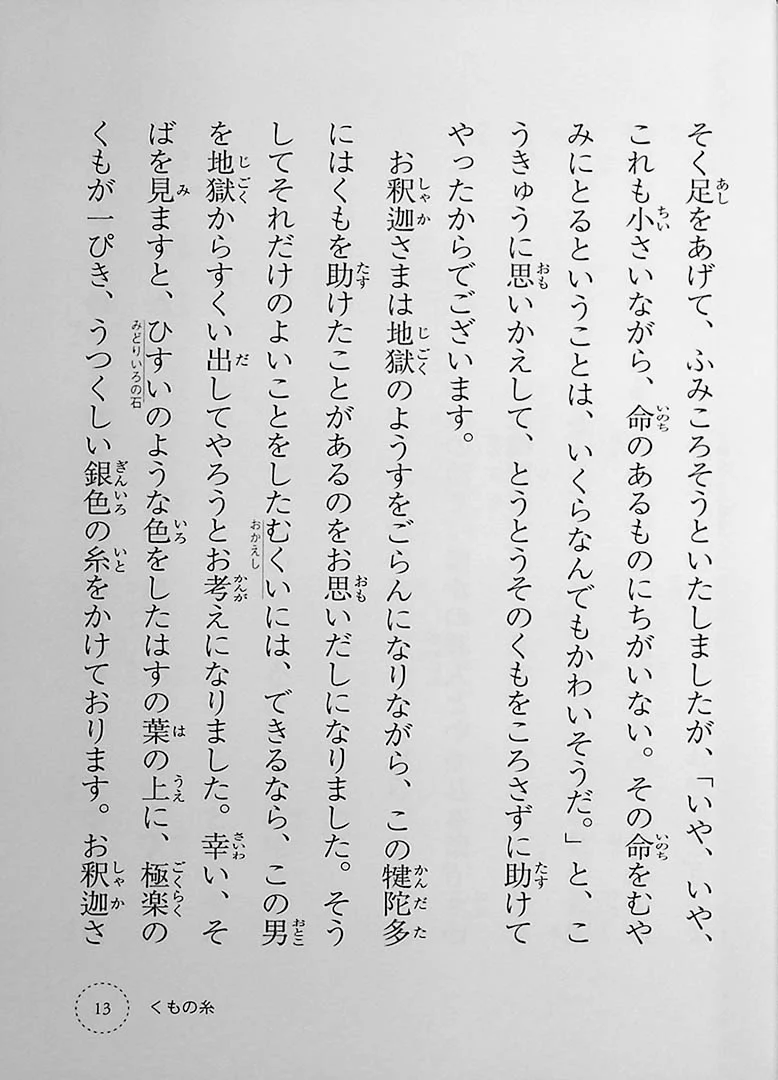 そく足をあげて、ふみころそうといたしましたが、「いや、いや、
これも小さいながら、命のあるものにちがいない。その命をむや
みにとるということは、いくらなんでもかわいそうだ。」と、こ
うきゅうに思いかえして、とうとうそのくもをころさずに助けて
やったからでございます。
お釈迦さまは地獄のようすをごらんになりながら、この犍陀多
にはくもを助けたことがあるのをお思いだしになりました。そう
してそれだけのよいことをしたむくいには、できるなら、この男
を地獄からすくい出してやろうとお考えになりました。幸い、そ
ばを見ますと、ひすいのような色をしたはすの葉の上に、極楽の
くもが一ぴき、うつくしい銀色の糸をかけております。お釈迦さ
あし
ちい
いのち
いのち
おも
たす
しゃか
じごく
かんだた
たす
おも
おかえし
おとこ
じごく
だ
かんが
さいわ
み
みどりいろの石
いろ
は
うえ
ごくらく
ぎんいろ
いと
しゃか
13
くもの糸